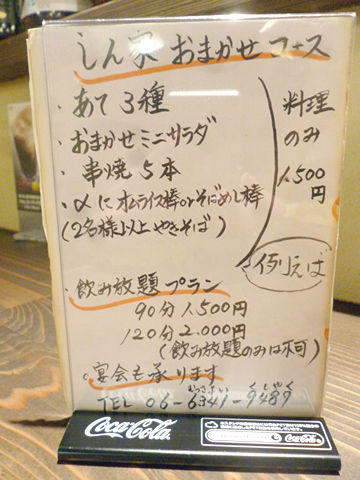 しん家 おまかせコース
・あて3種
・おまかせミニサラダ
・串焼5本
・〆にオムライス棒orそばめし棒
(2名様以上やきそば)
料理
のみ
1.500
円
例えば
・飲み放題プラン
90分1.500円
120分2.000円
(飲み放題のみは不可)
○宴会も承ります
TEL 06-6347-9489
Coca-Cola
Coca-Cola